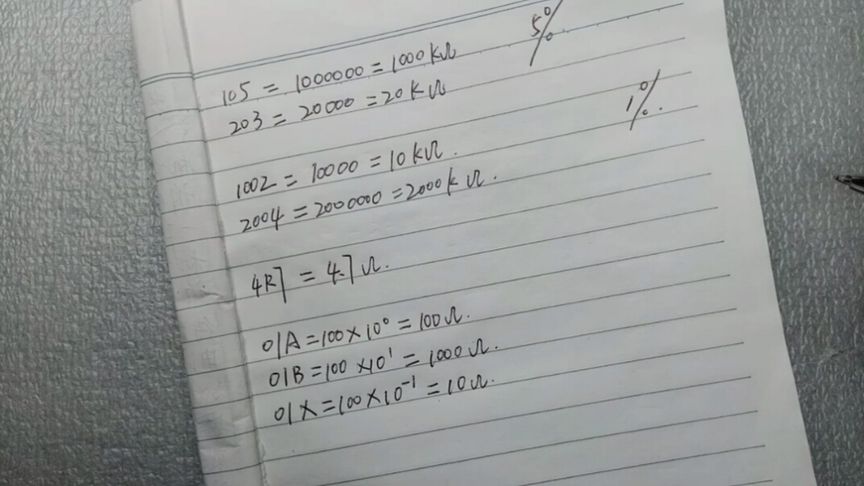 5%
105 = 1000000 = 1000 KΩ
203 = 20000 = 20 KΩ
1%.
1002 = 10000 = 10 KΩ.
2004 = 2000000 = 2000 k Ω.
4R7 = 4.7 Ω.
01A = 100 × 10⁰ = 100 Ω.
01B = 100 × 10¹ = 1000 Ω.
01X = 100 × 10⁻¹ = 10 Ω.